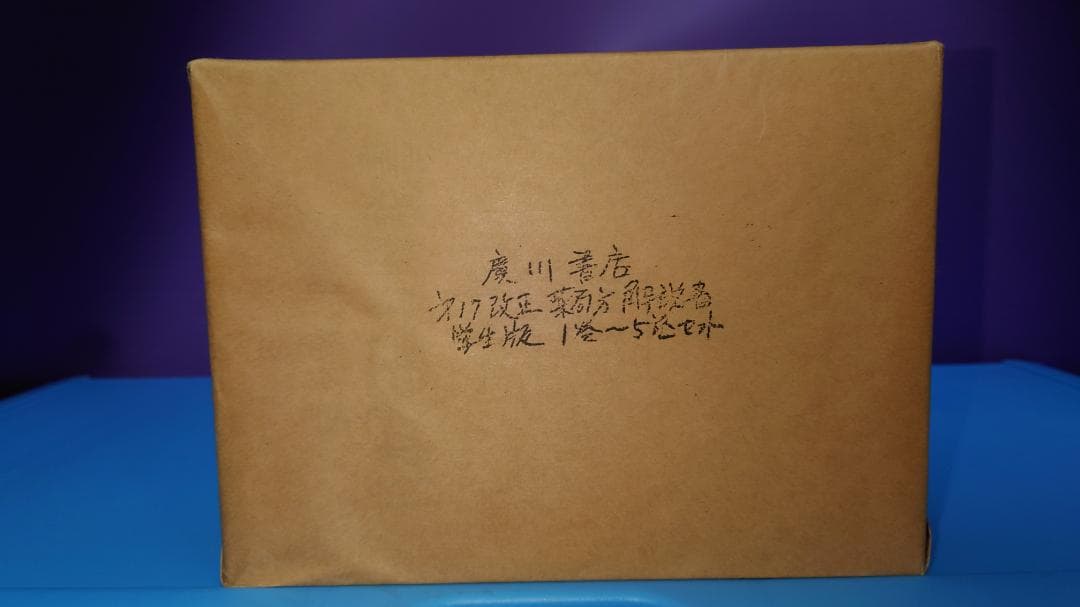 廣川書店
第17改正薬局方解説書
学生版 1巻~5巻セット